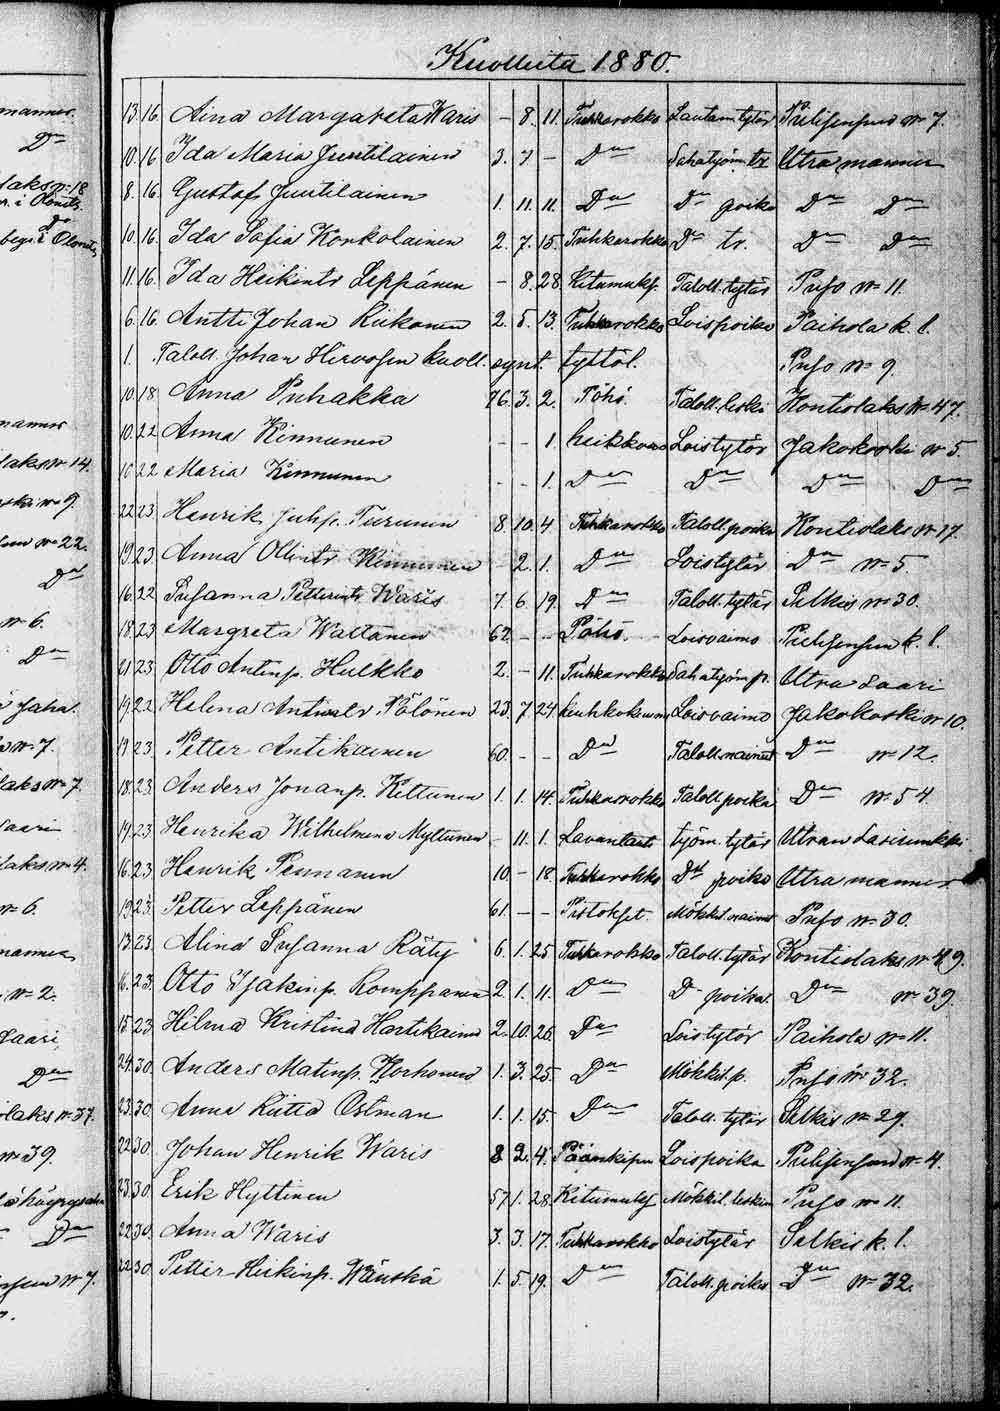 Kuolleita 1880.
13. 16. Aina Margareta Waris - 8. 11. Tuhkarokko Lautam. tytär Pielisensuu No 7.
10. 16 Ida Maria Juntilainen 3. 7 - Do Sahatyöm. tr. Utra manner
8. 16. Gustaf Juntilainen 1. 11. 11. Do Do poika Do Do
10. 16. Ida Sofia Konkolainen 2. 7. 15. Tuhkarokko Do tr. Do Do
11. 16. Ida Heikintr Leppänen - 8. 28. Kitumukf. Taloll. tytär Pufo No 11
6. 16. Antti Johan Kukonen 2. 5. 13. Tuhkarokko Loispoika Paihola k. l.
1. Taloll. Johan Hirvosen kuoll. synt. tyttöl. Pufo No 9
10. 18 Anna Puhakka 76. 3. 2. Pöhö. Taloll. leski Kontiolaks No 47.
10. 22 Anna Kinnunen - - 1 heikkous Loistytär Jakokoski No 5.
10 22 Maria Kinnunen - - 1. Do Do Do Do
22 23. Henrik Juhp. Turunen 8. 10. 4 Tuhkarokko Taloll. poika Kontiolaks No 17.
19. 23. Anna Ollintr Kinnunen - 2. 1. Do Loistytär Do No 5.
16. 22 Susanna Petterintr Waris 7. 6. 19. Do Taloll. tytär Selkis No 30.
18. 23 Margreta Wattanen 62. - - Pöhö. Loisvaimo Pielisensuu k. l.
21. 23. Otto Antinp. Hulkko 2. - 11. Tuhkarokko Sahatyöm. p. Utra Saari
19. 22. Helena Antintr Pölönen 23. 7. 24 keuhkokuume Loisvaimo Jakokoski No 10.
19. 23. Petter Antikainen 60. - - Do Taloll. nainut Do No 12.
18. 23. Anders Jonanp. Kettunen 1. 1. 14. Tuhkarokko Taloll. poika Do No 54.
19. 23. Henrika Wilhelmina Myttunen - 11. 1. Lavantauti työm. tytär Utran
16. 23. Henrik Pennanen 10. - 18. Tuhkarokko Do poika Utra manner
19. 23. Petter Leppänen 61. - - Pistokset. Mökkil. nainut Pufo No 30.
13. 23. Alina Susanna Räty 6. 1. 25. Tuhkarokko Taloll. tytär Kontiolaks No 49.
16. 23. Otto Isakinp. Romppanen 2. 1. 11. Do Do poika. Do No 39.
15. 23. Hilma Kristina Hartikainen 2. 10. 26. Do Loistytär Paihola No 11.
24. 30. Anders Matinp. Korhonen 1. 3. 25. Do Mökkil. p. Pufo No 32.
23. 30. Anna Riitta Ostman 1. 1. 15. Do Taloll. tytär Selkis No 29.
22. 30. Johan Henrik Waris 8 2. 4. Päänkipu Loispoika Pielisensuu No 4.
23. 30. Erik Hyttinen 57. 1. 28. Kitumukf Mökkil. leskim. Pufo No 11.
22. 30. Anna Waris 3. 3. 17. Tuhkarokko Loistytär Selkis k. l.
22. 30. Petter Heikinp. Wänskä 1. 5. 19. Do Taloll. poika Do No 32.